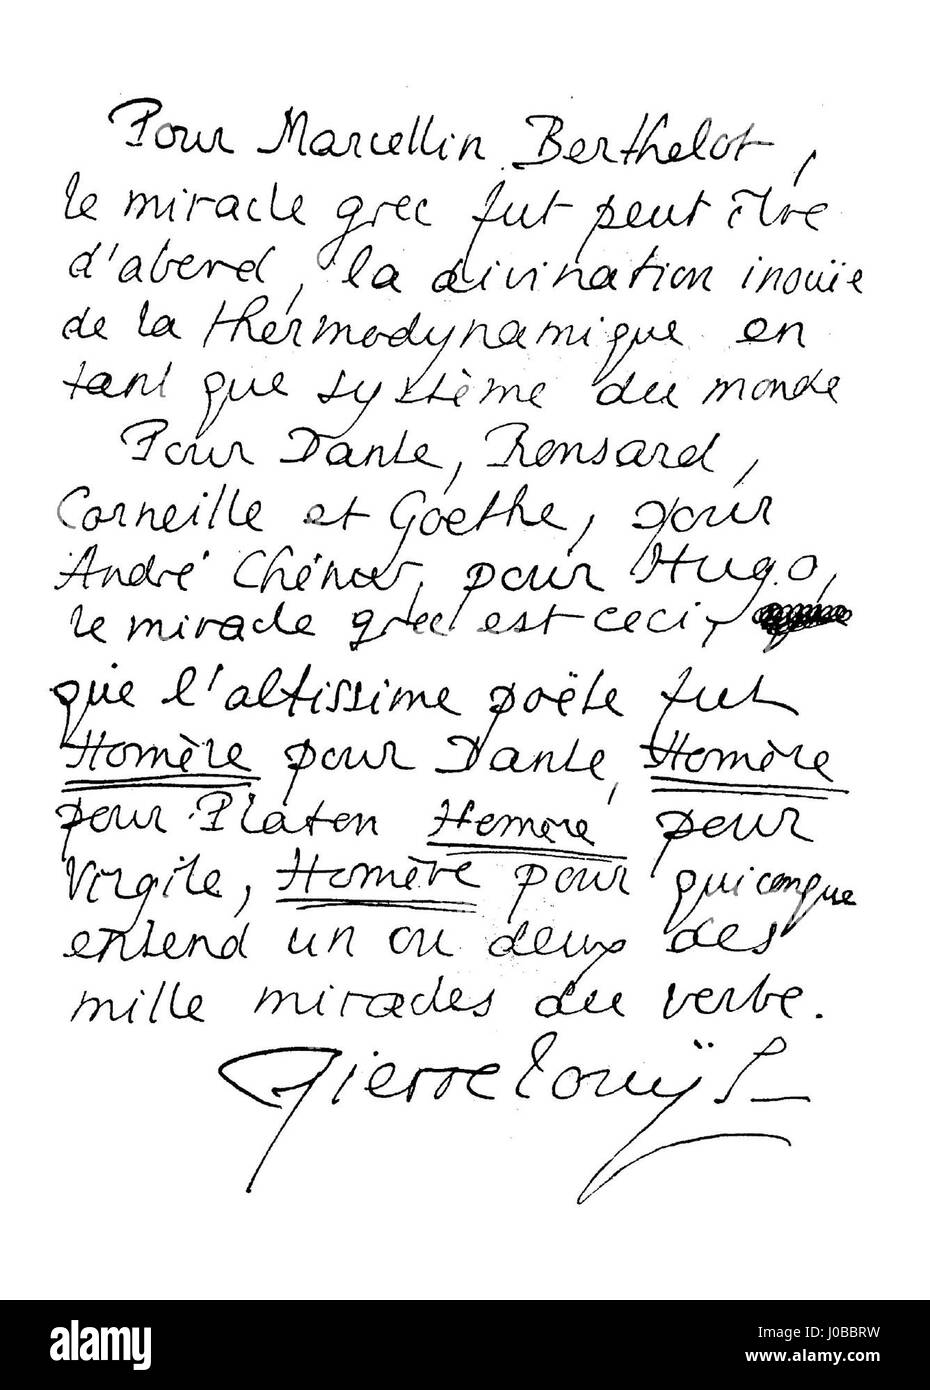 Pour Marcellin Berthelot,
le miracle grec fut peut être
d'abord, la divination inouïe
de la thérmodynamique en
tant que système du monde
Pour Dante, Ronsard,
Corneille et Goethe, pour
André Chénier, pour Hugo,
le miracle grec est ceci,
que l'altissime poëte fut
Homère pour Dante, Homère
pour Platon Homère pour
Virgile, Homère pour quiconque
entend un ou deux des
mille miracles du verbe.
Pierre Louÿs
alamy
Image ID: J0BBRW
www.alamy.com